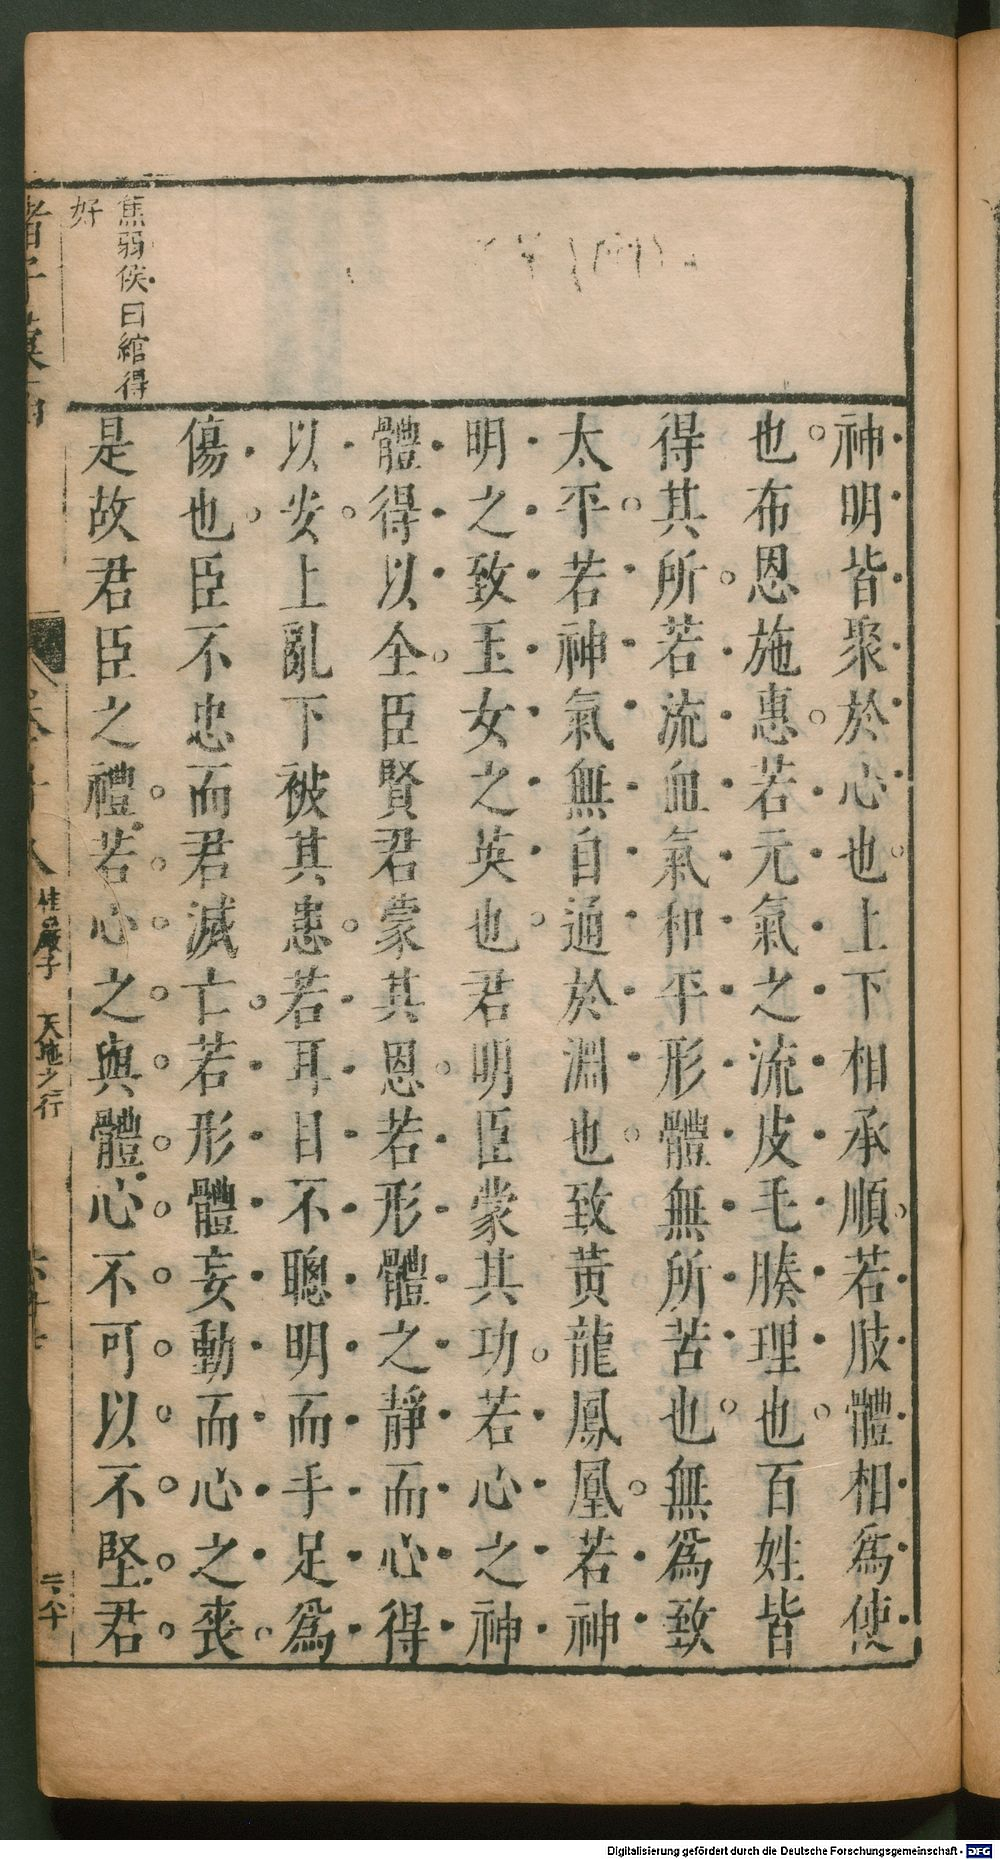 焦弱侯曰綰得
好
神明皆聚於心也上下相承順若肢體相爲使
也布恩施惠若元氣之流皮毛腠理也百姓皆
得其所若流血氣和平形體無所苦也無爲致
太平若神氣無自通於淵也致黄龍鳳凰若神
明之致玉女之英也君明臣蒙其功若心之神
體得以全臣賢君蒙其恩若形體之靜而心得
以安上亂下被其患若耳目不聰明而手足爲
傷也臣不忠而君滅亡若形體妄動而心之喪
是故君臣之禮若心之與體心不可以不堅君
桂巖子 天地之行
Digitalisierung gefördert durch die Deutsche Forschungsgemeinschaft - DFG